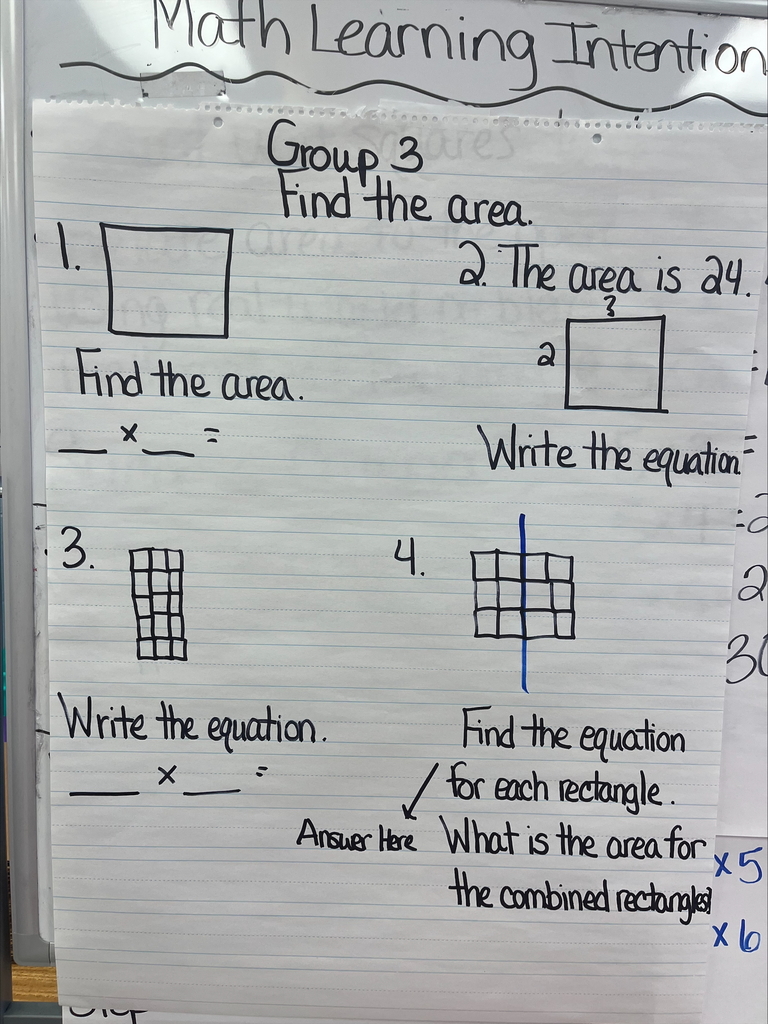 Math Learning Intention
Group 3
Find the area.
1.
Find the area.
__ x __ =
2. The area is 24.
3
2
Write the equation
3.
Write the equation.
__ x __ =
4.
Find the equation
for each rectangle.
Answer Here
What is the area for
the combined rectangles?
=
=
=2
2
30
x5
x6
Step